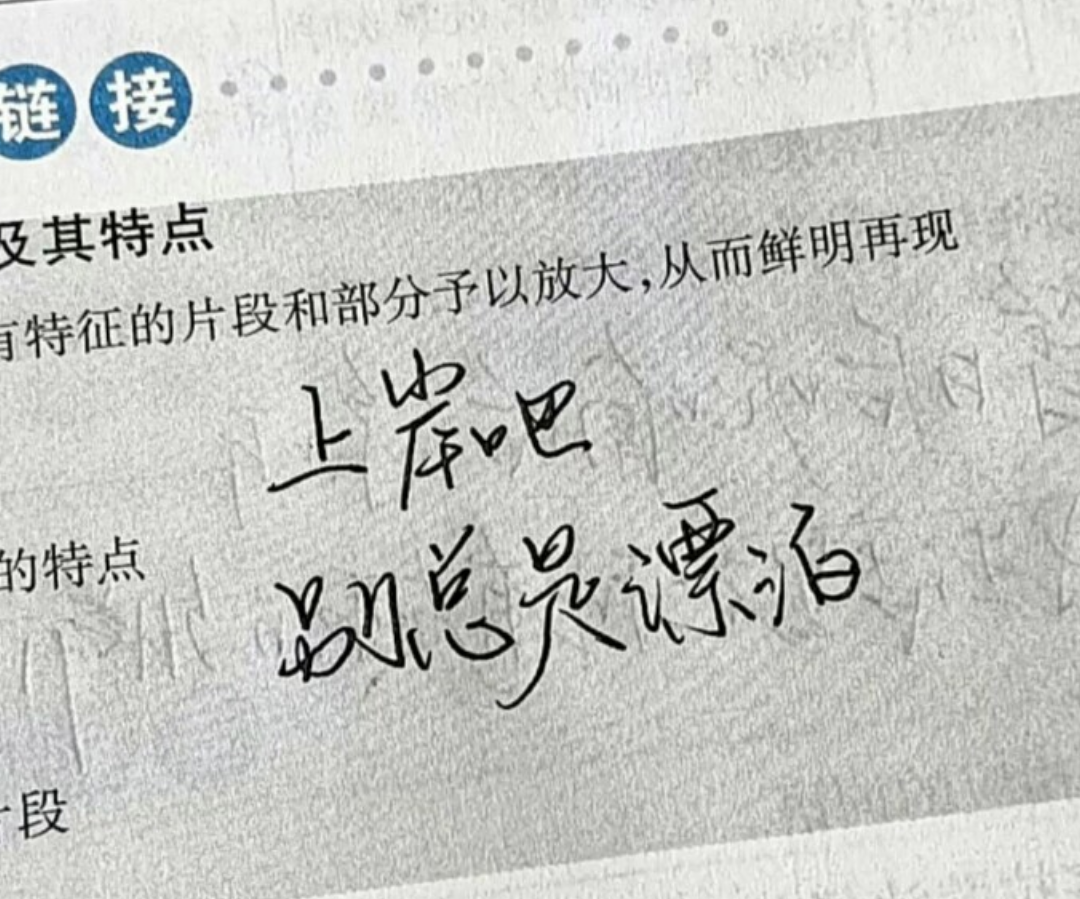 链接
及其特点
有特征的片段和部分予以放大,从而鲜明再现
上岸吧
的特点
别总是漂泊
片段